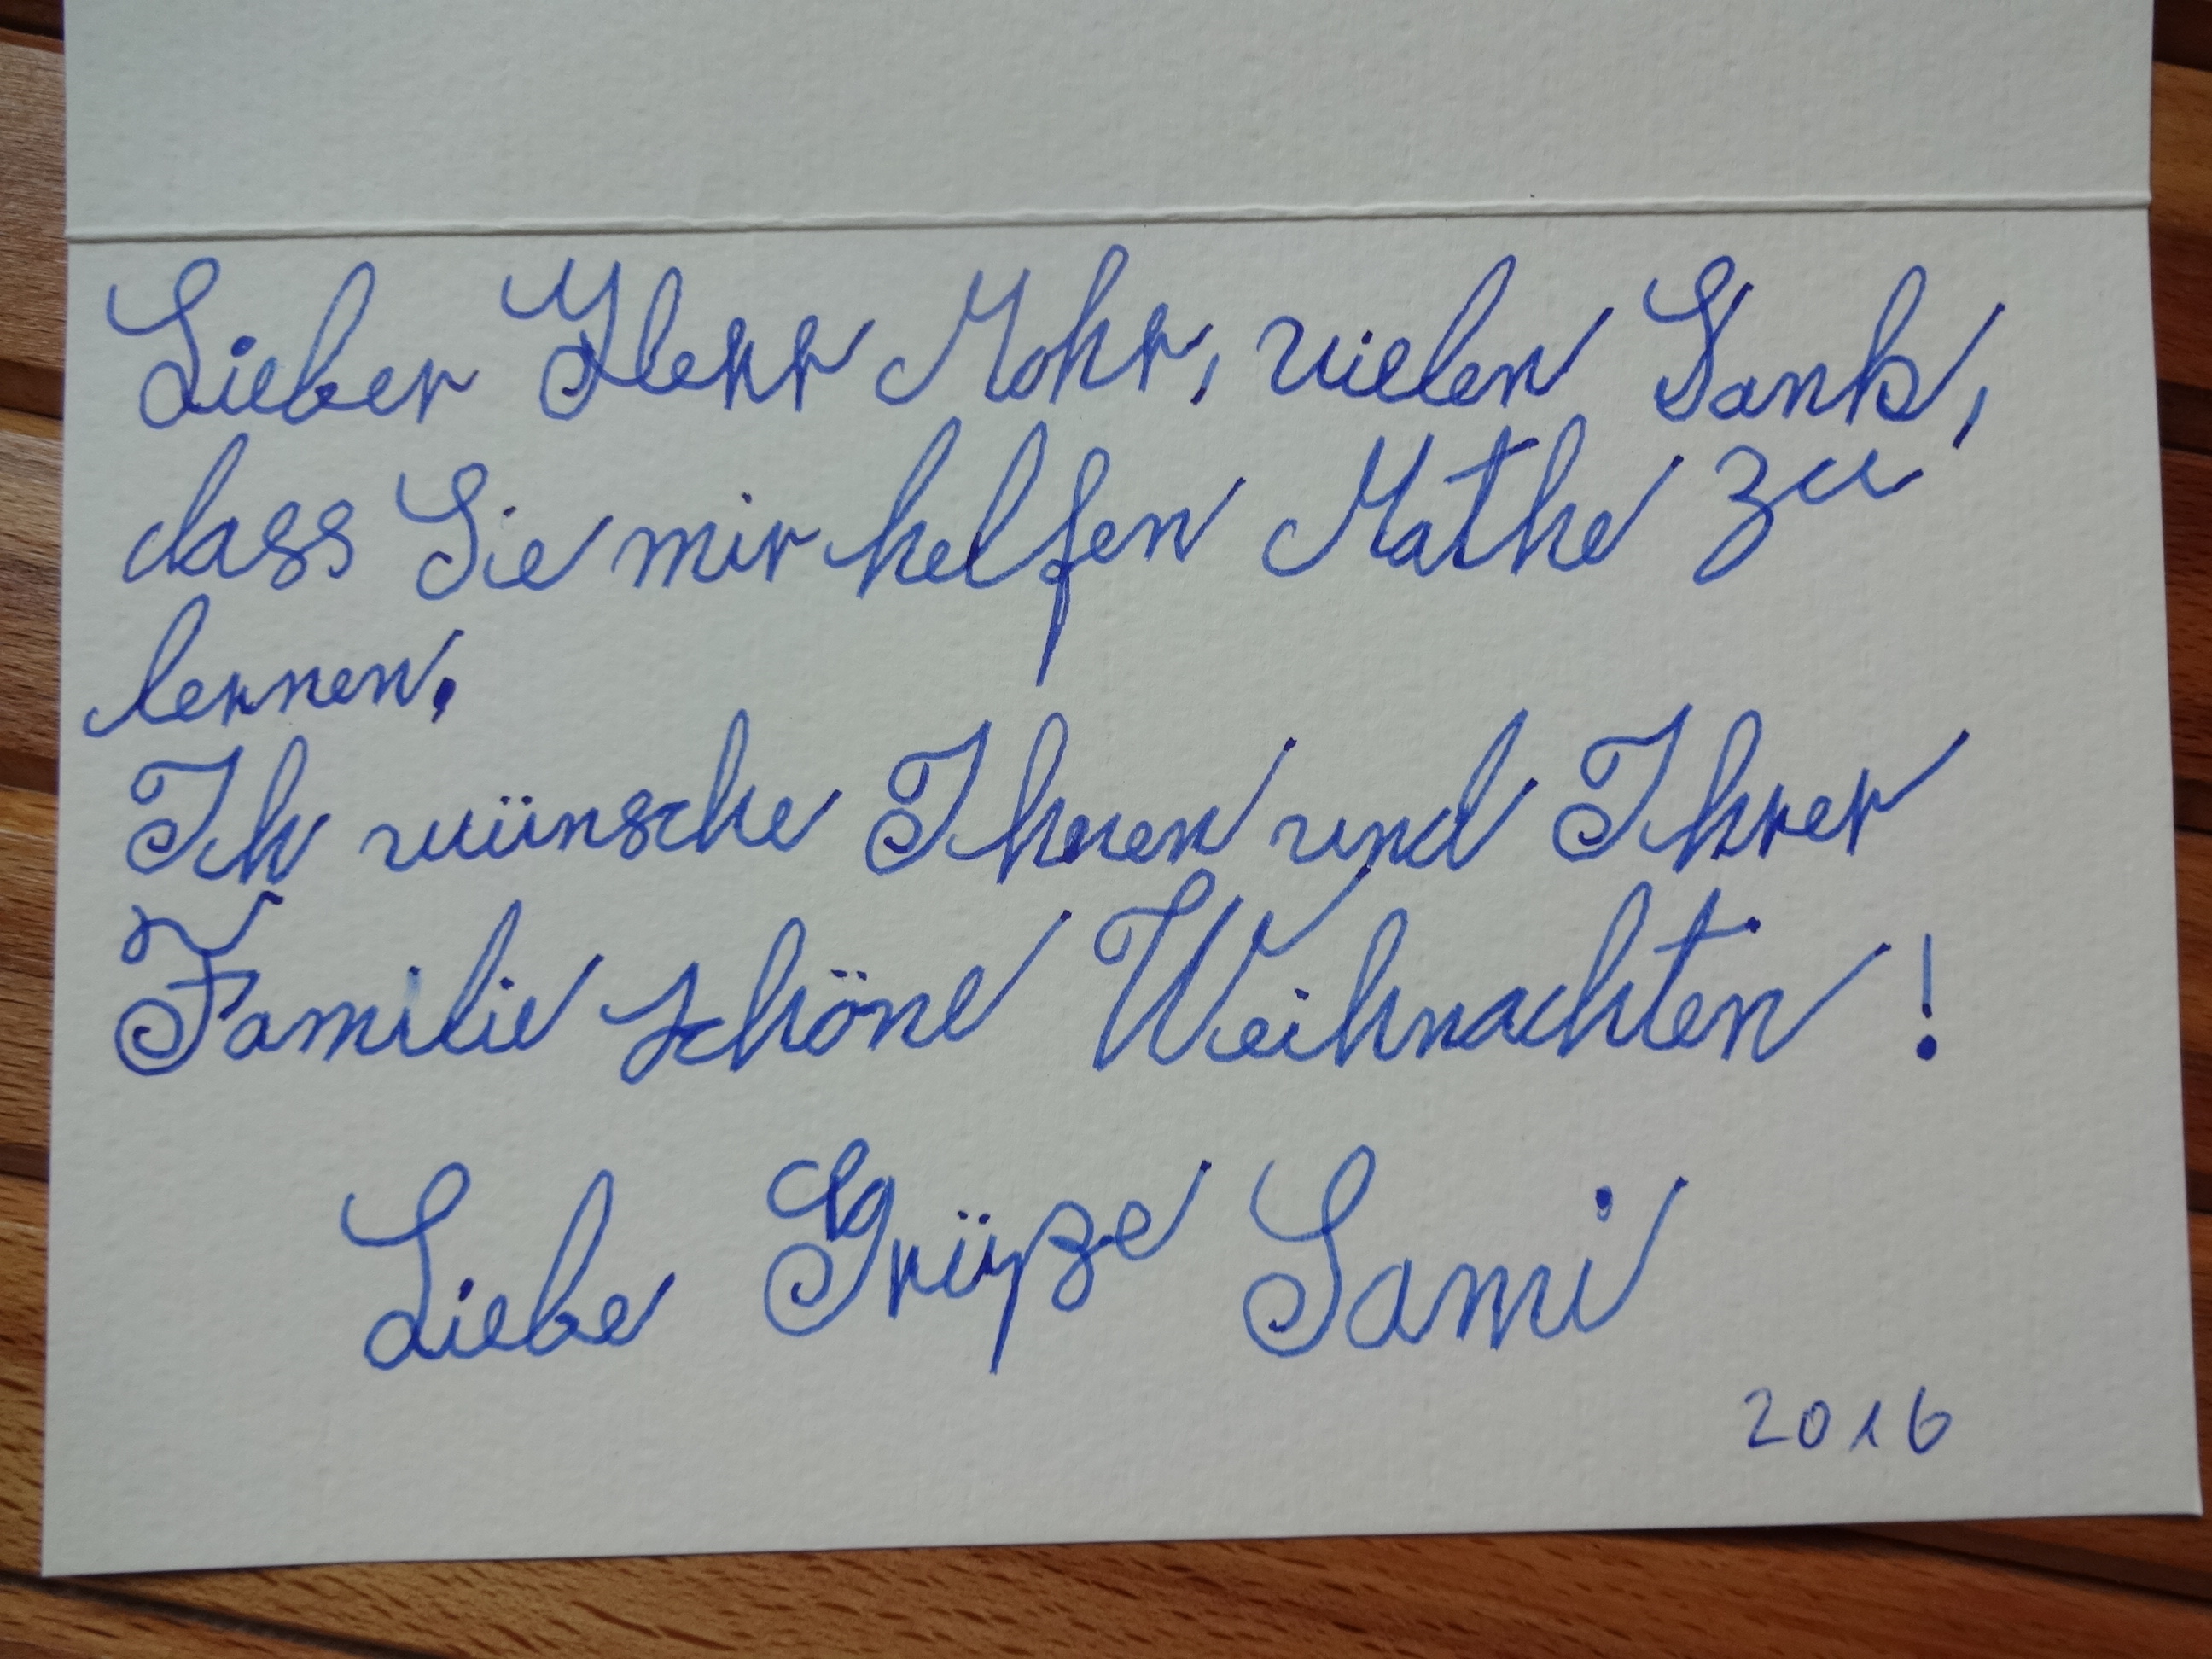 Lieber Herr Mohr, vielen Dank,
dass Sie mir helfen Mathe zu
lernen.
Ich wünsche Ihnen und Ihrer
Familie schöne Weihnachten !
Liebe Grüße Sami
2016